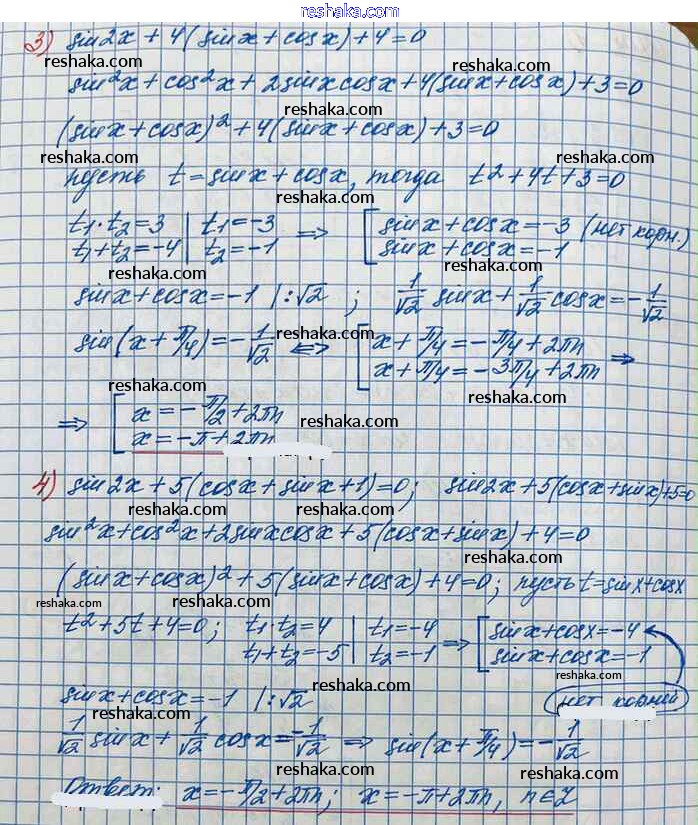 reshaka.com
3) sin2x + 4(sinx + cosx) + 4 = 0
reshaka.com
sin²x + cos²x + 2sinxcosx + 4(sinx + cosx) + 3 = 0
reshaka.com
(sinx + cosx)² + 4(sinx + cosx) + 3 = 0
reshaka.com reshaka.com
пусть t = sinx + cosx, тогда t² + 4t + 3 = 0
reshaka.com
t₁·t₂ = 3 | t₁ = -3 ⇒ [ sinx + cosx = -3 (нет корн.)
t₁ + t₂ = -4 | t₂ = -1 [ sinx + cosx = -1
reshaka.com reshaka.com
sinx + cosx = -1 |:√2 ; 1/√2 sinx + 1/√2 cosx = -1/√2
reshaka.com
sin(x + π/4) = -1/√2 ⇔ [ x + π/4 = -π/4 + 2πn ⇒
[ x + π/4 = -3π/4 + 2πn
reshaka.com reshaka.com
⇒ [ x = -π/2 + 2πn
[ x = -π + 2πn
reshaka.com
reshaka.com
4) sin2x + 5(cosx + sinx + 1) = 0; sin2x + 5(cosx + sinx) + 5 = 0
reshaka.com
sin²x + cos²x + 2sinxcosx + 5(cosx + sinx) + 4 = 0
reshaka.com
(sinx + cosx)² + 5(sinx + cosx) + 4 = 0; пусть t = sinx + cosx
reshaka.com reshaka.com
t² + 5t + 4 = 0; t₁·t₂ = 4 | t₁ = -4 ⇒ [ sinx + cosx = -4
t₁ + t₂ = -5 | t₂ = -1 [ sinx + cosx = -1
reshaka.com reshaka.com
sinx + cosx = -1 |:√2 нет корней
reshaka.com
1/√2 sinx + 1/√2 cosx = -1/√2 ⇒ sin(x + π/4) = -1/√2
reshaka.com reshaka.com
Ответ: x = -π/2 + 2πn; x = -π + 2πn, n∈Z
reshaka.com